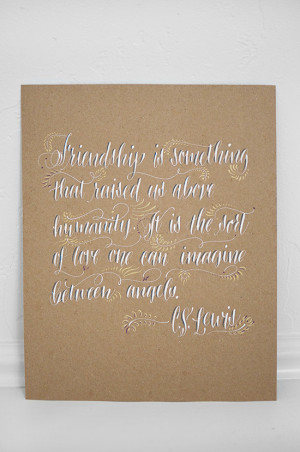 Friendship is something
that raised us above
humanity. It is the sort
of love one can imagine
between angels.
-C.S. Lewis